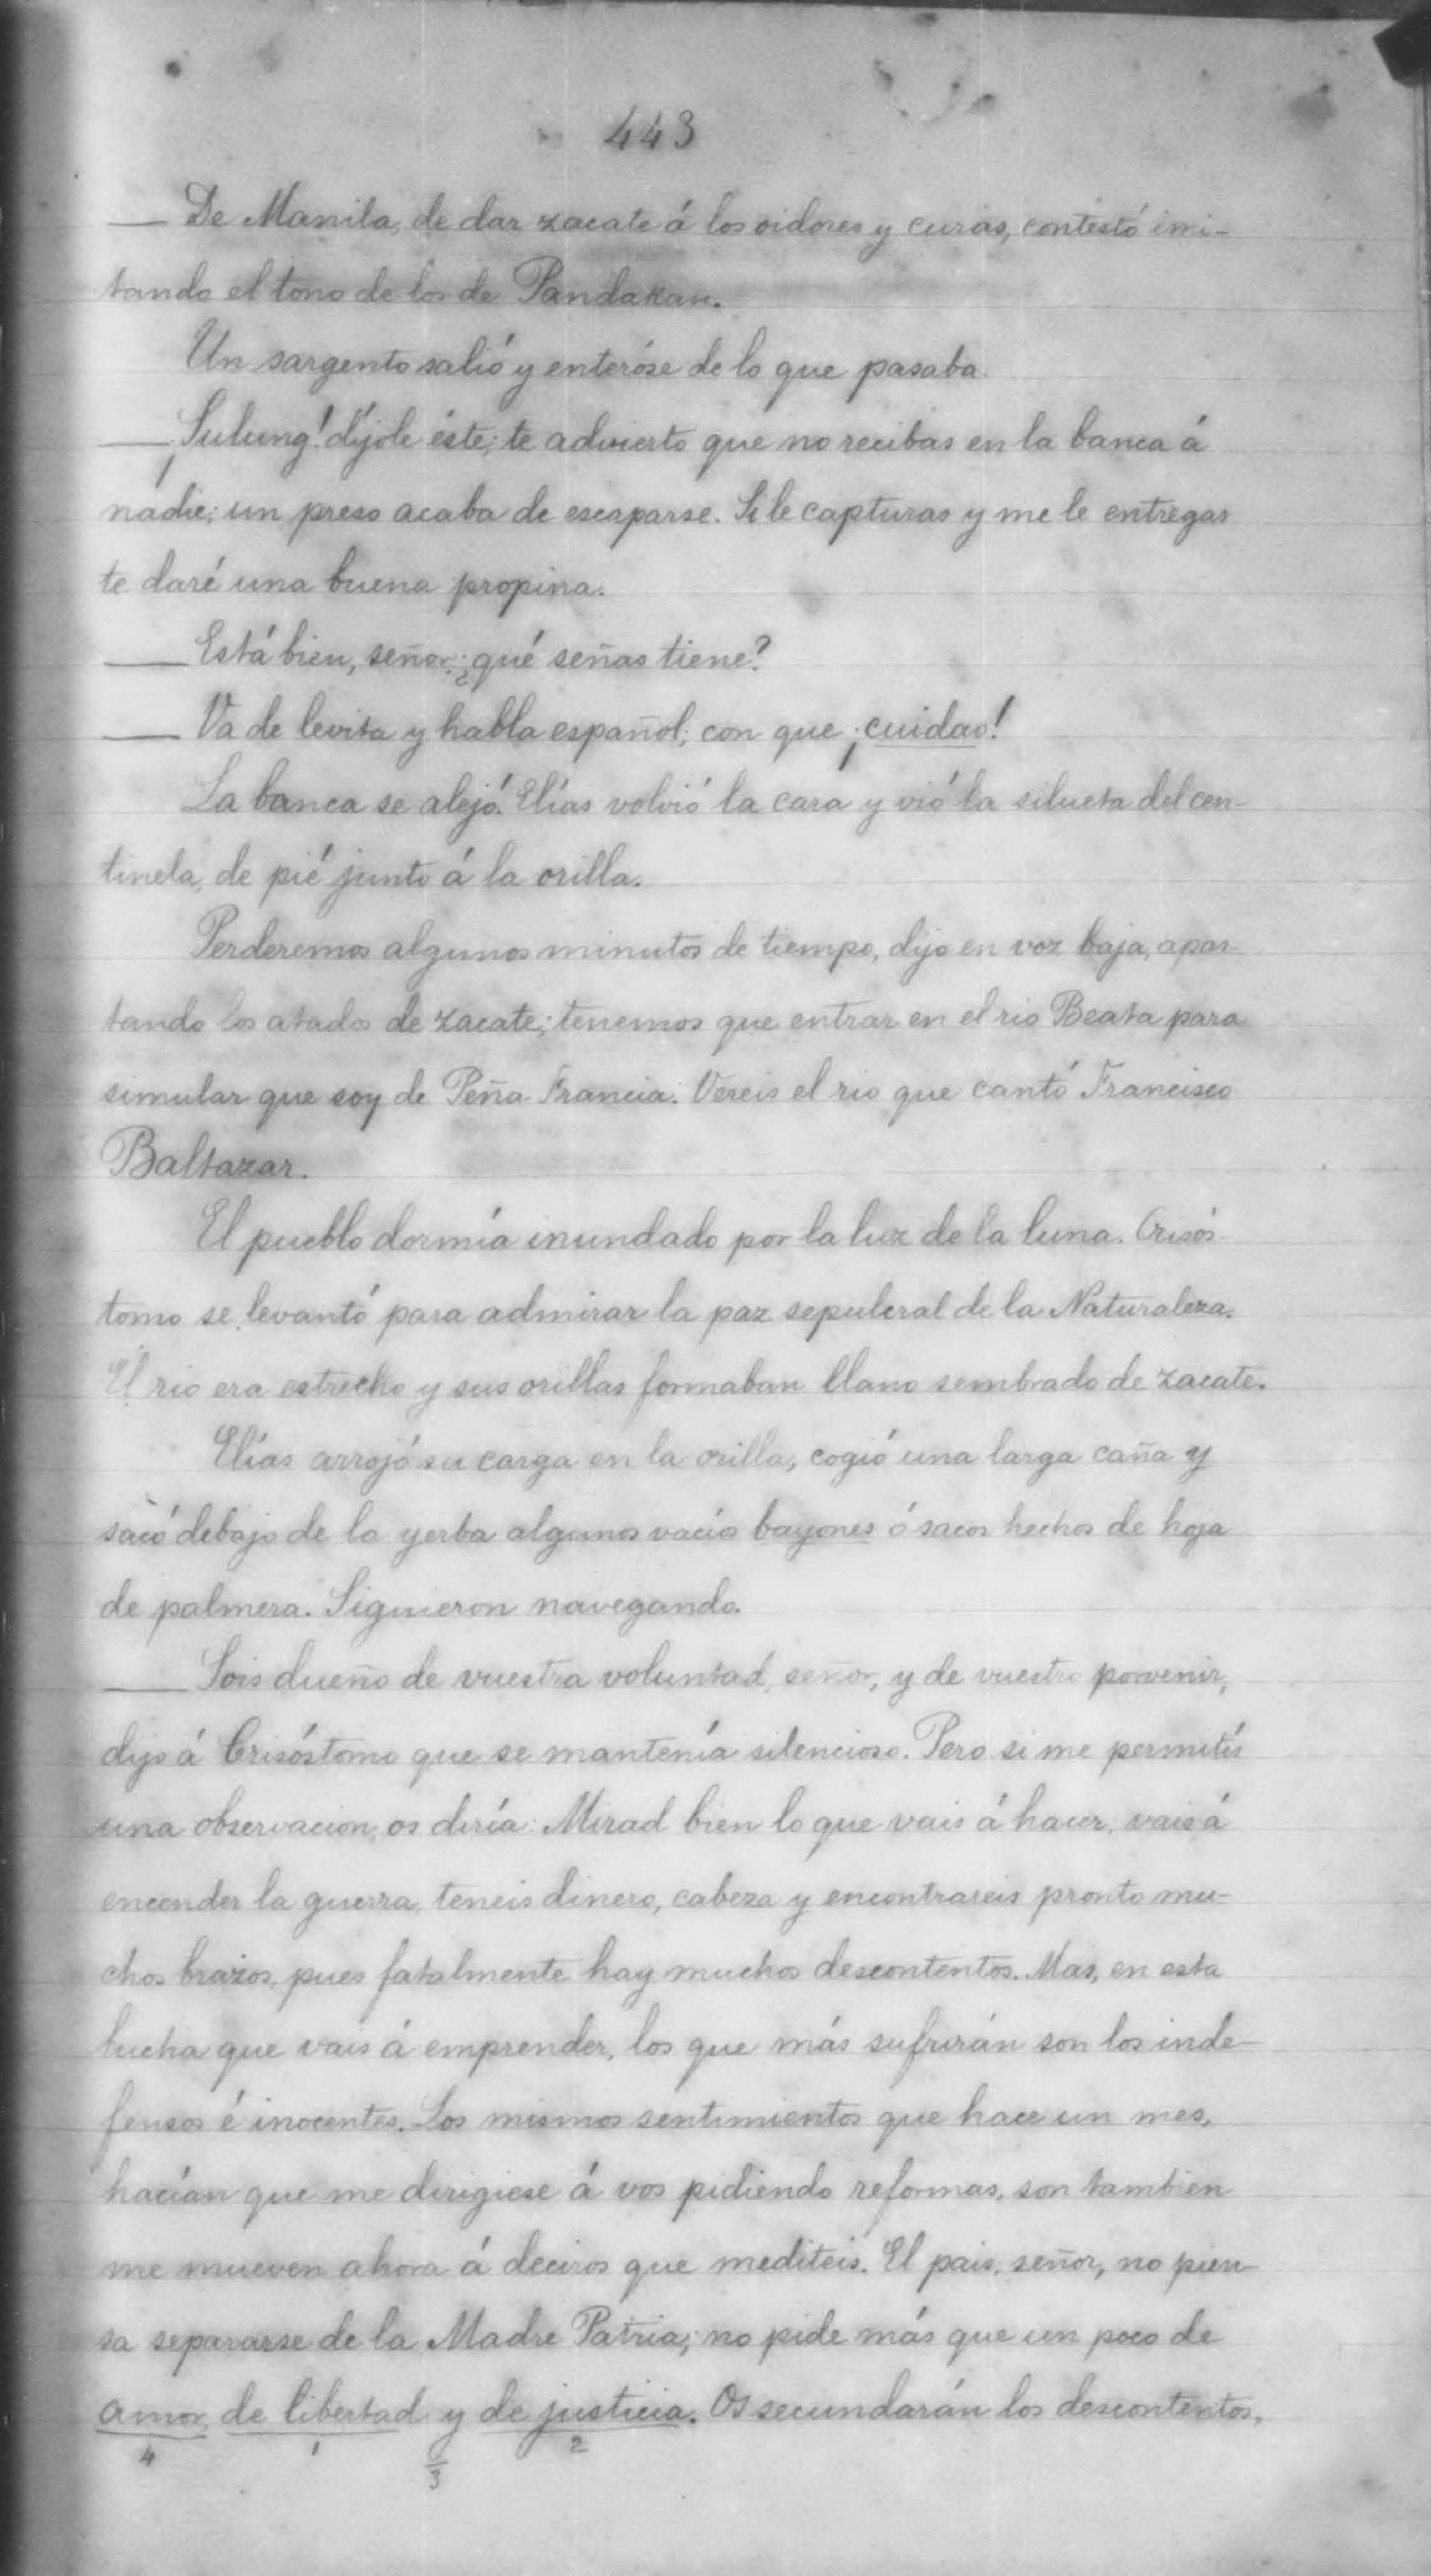 443
— De Manila, de dar zacate á los oidores y curas, contestó imi-
tando el tono de los de Pandakan.
Un sargento salió y enteróse de lo que pasaba.
— ¡Sulung! díjole éste; te advierto que no recibas en la banca á
nadie; un preso acaba de escaparse. Si le capturas y me le entregas
te daré una buena propina.
— Está bien, señor; ¿qué señas tiene?
— Va de levita y habla español; con que ¡cuidao!
La banca se alejó. Elías volvió la cara y vió la silueta del cen-
tinela, de pié junto á la orilla.
Perderemos algunos minutos de tiempo, dijo en voz baja, apar-
tando los atados de zacate; tenemos que entrar en el rio Beata para
simular que soy de Peña Francia. Vereis el rio que cantó Francisco
Baltazar.
El pueblo dormía inundado por la luz de la luna. Crisós-
tomo se levantó para admirar la paz sepulcral de la Naturaleza.
El rio era estrecho y sus orillas formaban llano sembrado de zacate.
Elías arrojó su carga en la orilla, cogió una larga caña y
sacó debajo de la yerba algunos vacíos bayones ó sacos hechos de hoja
de palmera. Siguieron navegando.
— Sois dueño de vuestra voluntad, señor, y de vuestro porvenir,
dijo á Crisóstomo que se mantenía silencioso. Pero si me permitís
una observacion, os diría: Mirad bien lo que vais á hacer, vais á
encender la guerra, teneis dinero, cabeza y encontrareis pronto mu-
chos brazos, pues fatalmente hay muchos descontentos. Mas, en esta
lucha que vais á emprender, los que más sufrirán son los inde-
fensos é inocentes. Los mismos sentimientos que hace un mes,
hacían que me dirigiese á vos pidiendo reformas, son tambien
me mueven ahora á deciros que mediteis. El pais, señor, no pien-
sa separarse de la Madre Patria; no pide más que un poco de
amor, de libertad y de justicia. Os secundarán los descontentos,
4 1 3 2